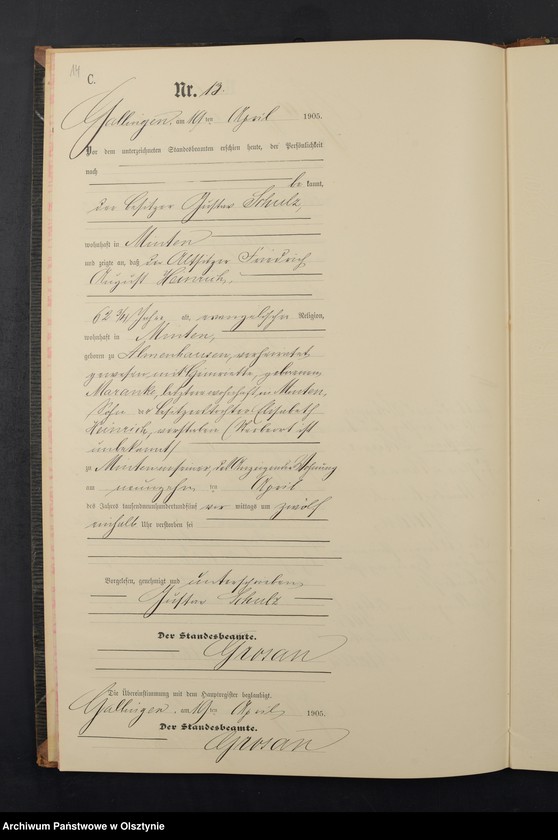 14
C.
Nr. 13.
Gallingen, am 19ten April 1905.
Vor dem unterzeichneten Standesbeamten erschien heute, der Persönlichkeit
nach
be kannt,
der Besitzer Gustav Schulz,
wohnhaft in Minten
und zeigte an, daß der Altsitzer Friedrich
August Heinrich,
62 3/4 Jahre, evangelischer Religion,
wohnhaft in Minten,
geboren zu Almenhausen, verheiratet
gewesen mit Henriette, geborenen
Maranke, letztere wohnhaft in Minten,
Sohn der Besitzertochter Elisabeth
Heinrich, verstorben (Sterbeort ist
unbekannt)
zu Minten in seiner, des Anzeigenden Wohnung
am neunzehnten April
des Jahres tausendneunhundertundfünf vor mittags um zwölf
einhalb Uhr verstorben sei
Vorgelesen, genehmigt und unterschrieben
Gustav Schulz
Der Standesbeamte.
Grosan
Die Übereinstimmung mit dem Hauptregister beglaubigt.
Gallingen, am 19ten April 1905.
Der Standesbeamte.
Grosan
Archiwum Państwowe w Olsztynie